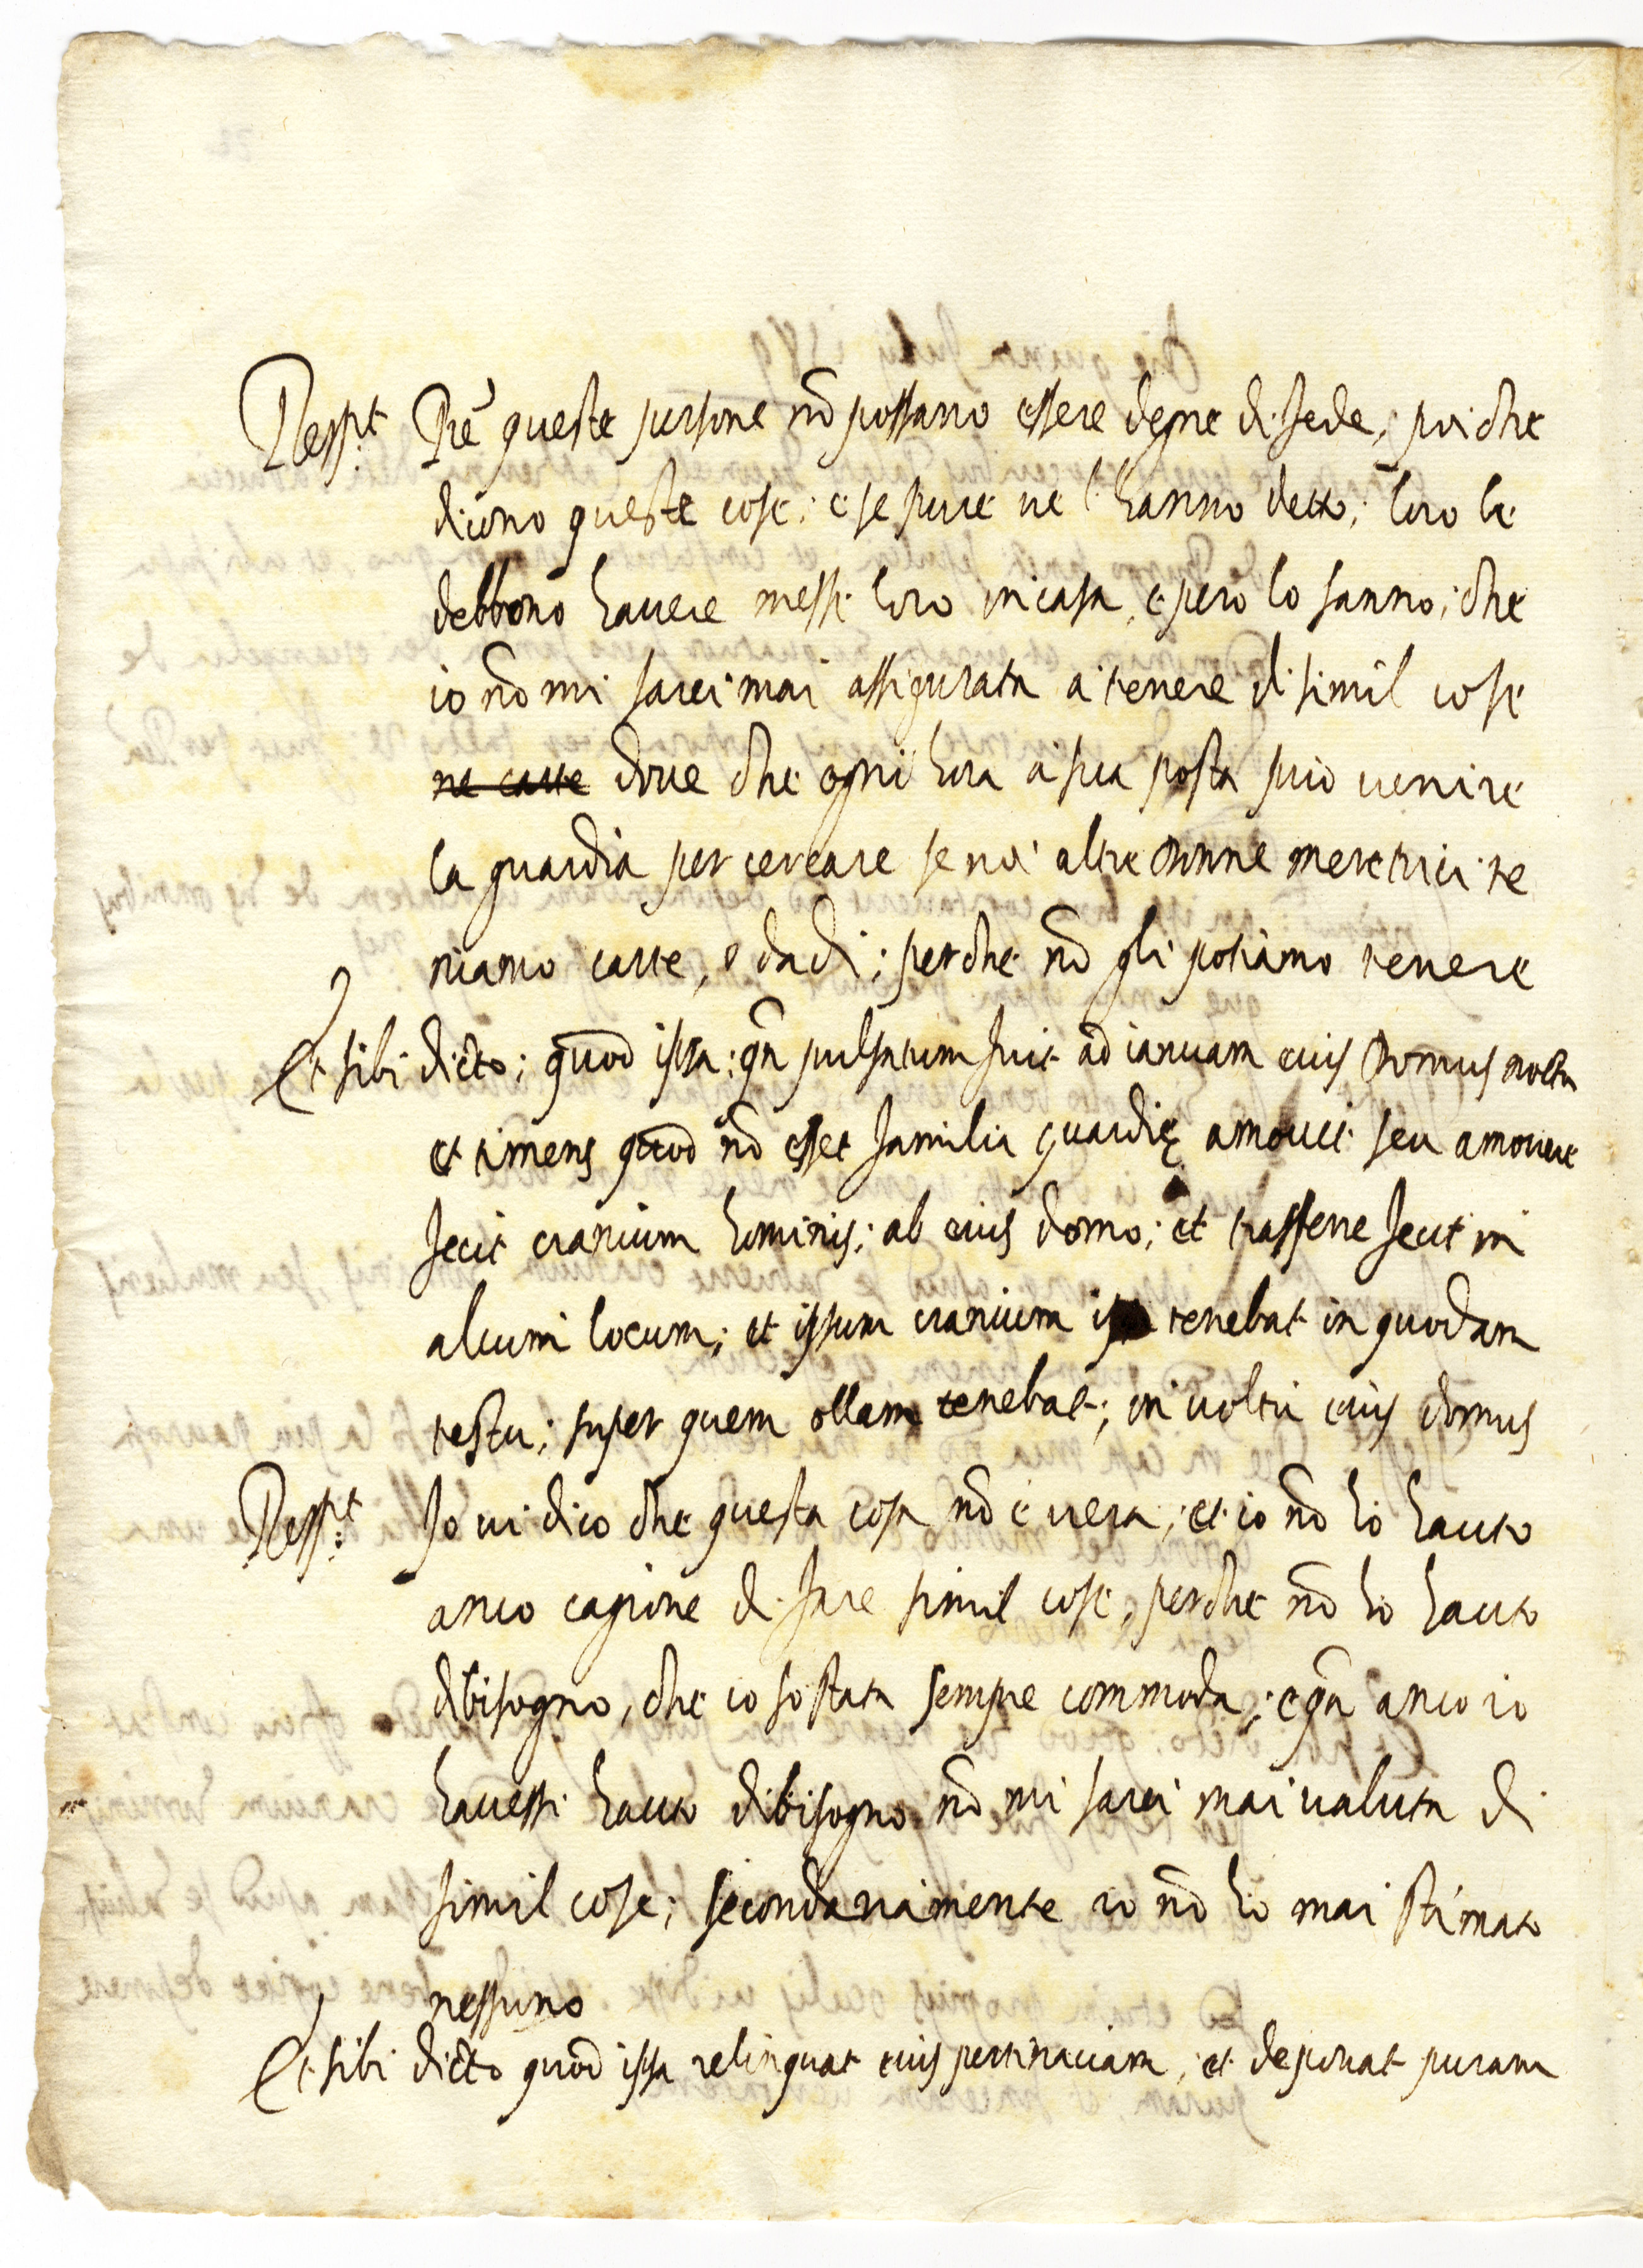 Resp.t Pre queste persone nõ possano essere degne di fede, poi che
dicono queste cose; e se pure ve l'hanno detto; loro le
debbono havere messe loro in casa, e pero lo sanno; che
io nõ mi sarei mai assigurata a tenere di simil cose
ne carte dove che ogni hora a sua posta può venire
la guardia per cercare se noi altre donne meretrici te
niamo carte, e dadi; perche nõ gli potiamo tenere
Et sibi dicto; quod ipsa; qñ pulsatum fuit ad ianuam eius domus noctu
et timens quod nõ esset familia guardię amovit seu amovere
fecit cranium hominis; ab eius domo; et trasferre fecit in
alium locum; et ipsum cranium ipsa tenebat in quodam
testu; super quem ollam tenebat; in voltu eius domus
Resp.t Io vi dico che questa cosa nõ è vera; et io nõ hò hauto
anco cagione di fare simil cose, perche nõ hò hauto
dibisogno, che io so stata sempre commoda; e qñ anco io
havessi hauto dibisogno nõ mi sarei mai valuta di
simil cose; secondariamente io nõ hò mai stimato
nessuno
Et sibi dicto quod ipsa relinquat eius pertinaciam, et deponat puram